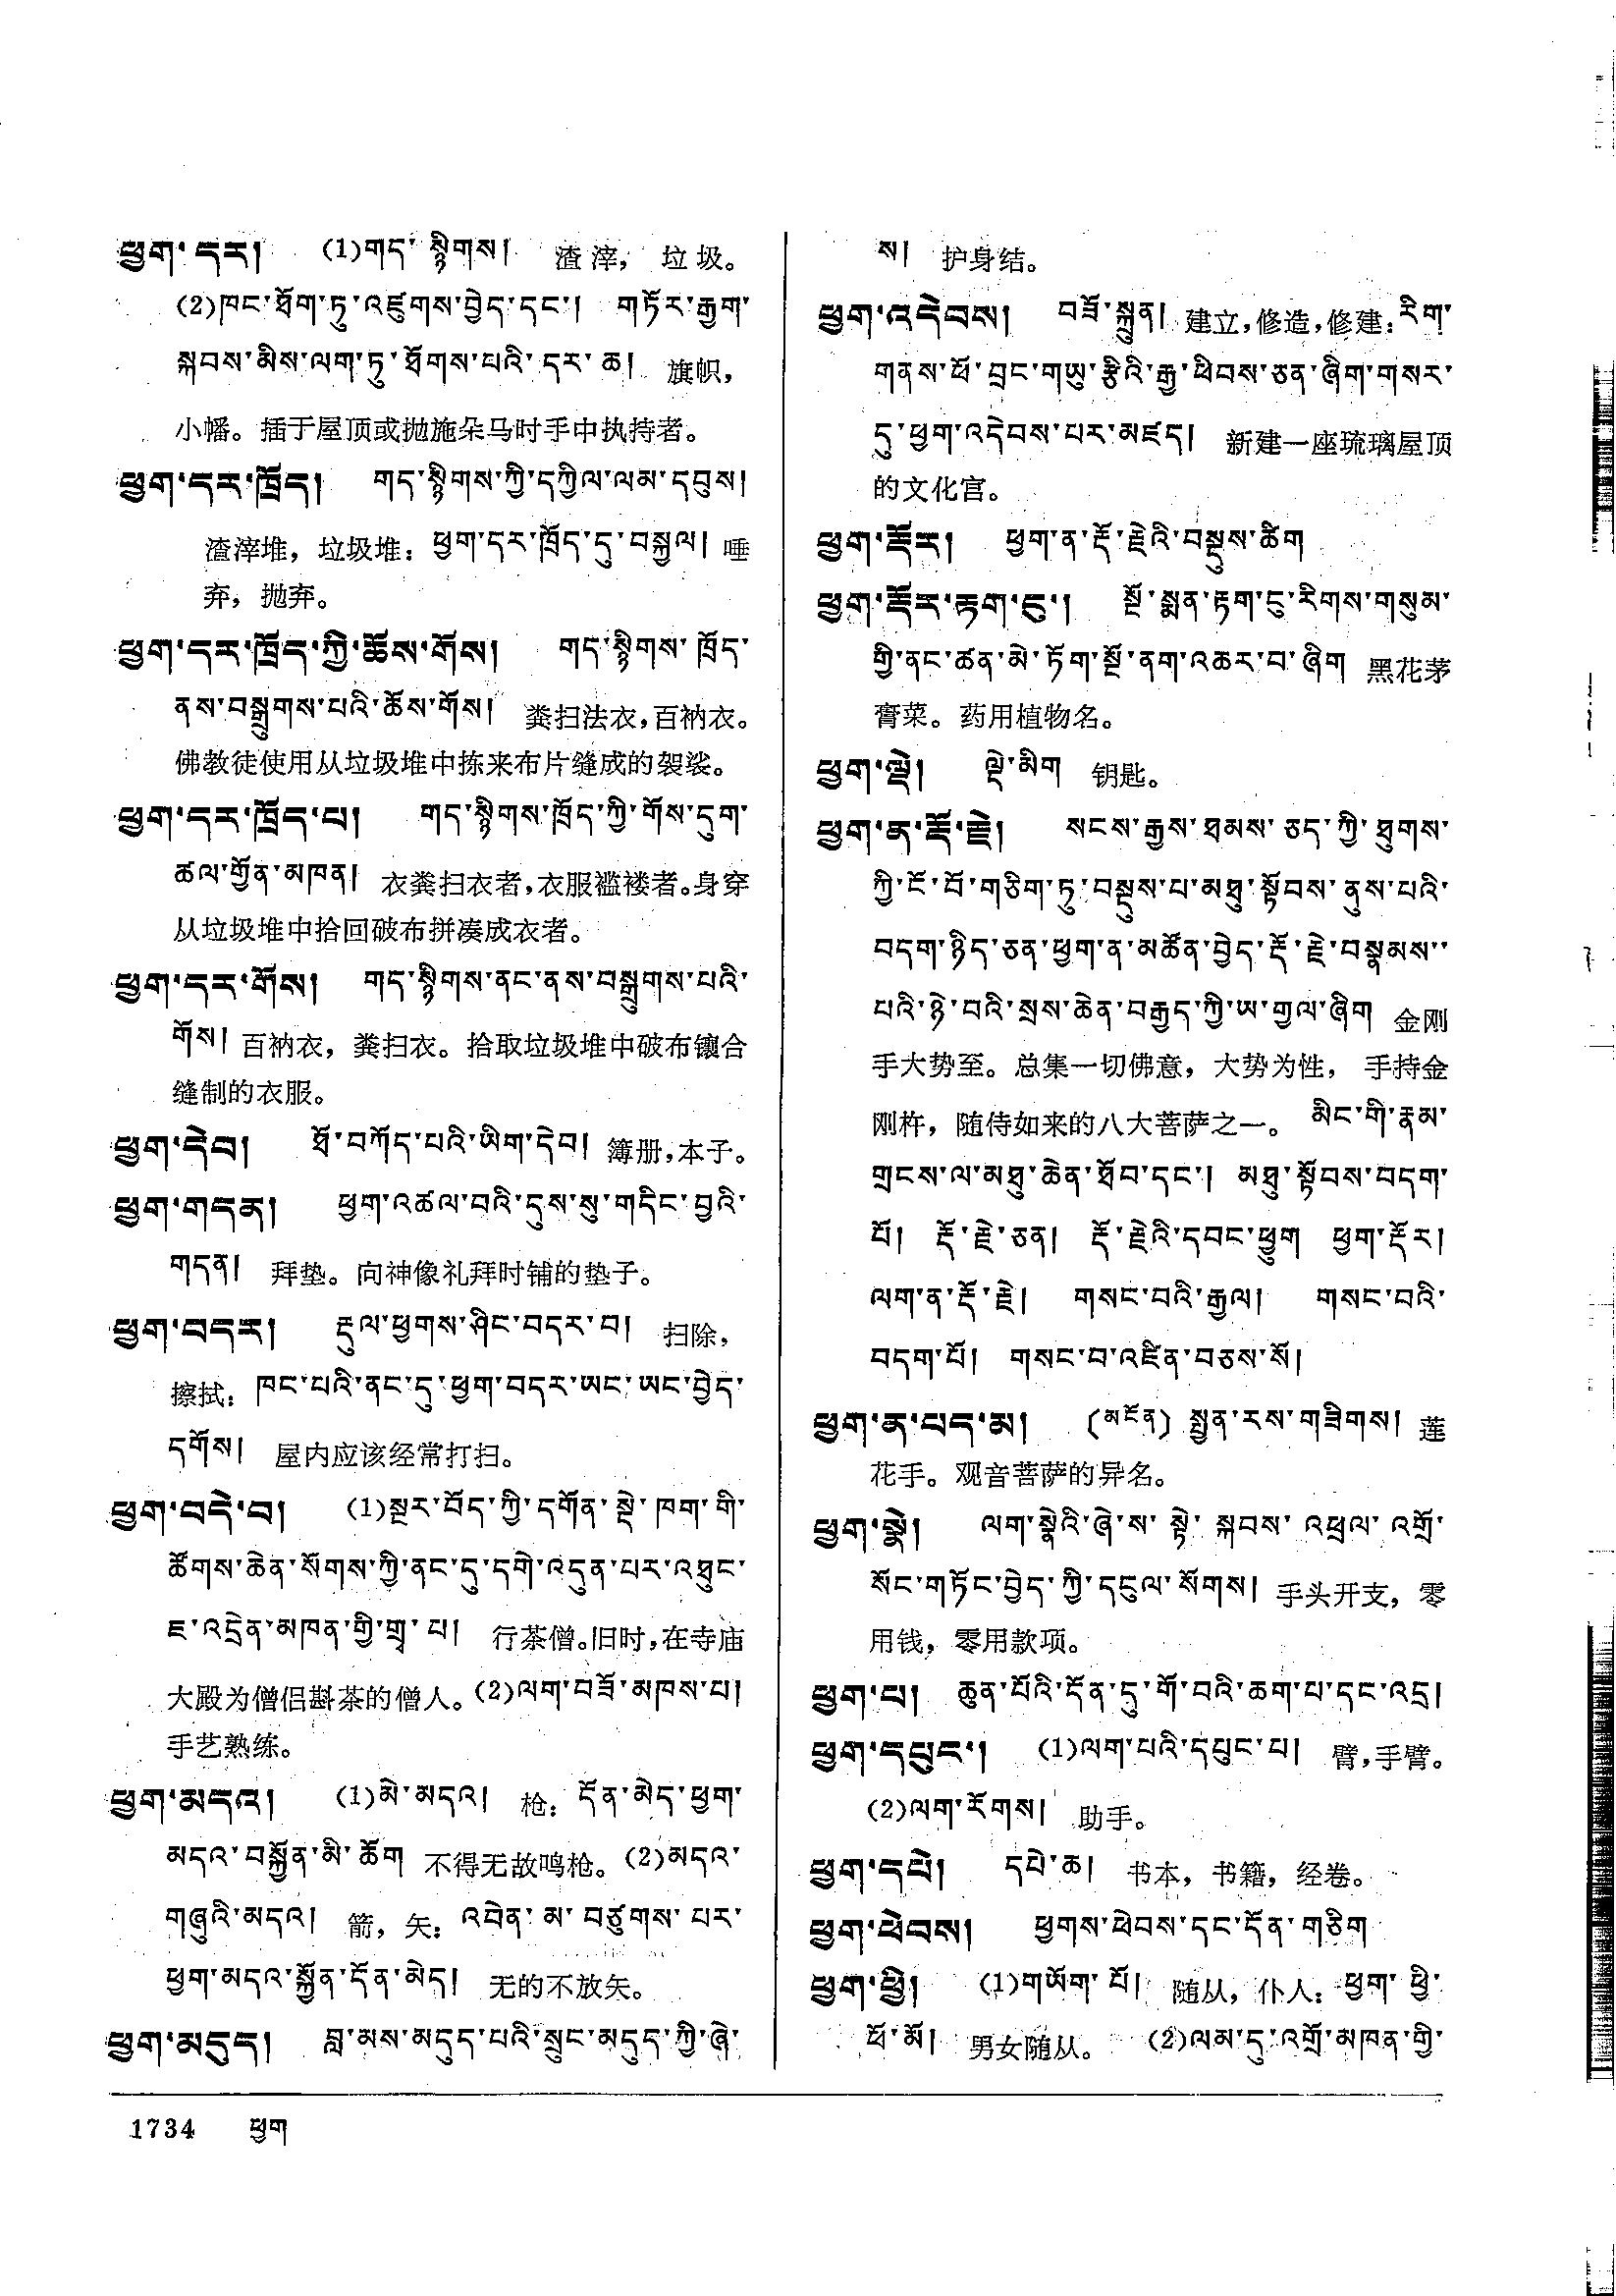 ཕྱག་དར། (1)གད་སྙིགས། 渣滓, 垃圾。
(2)ཁང་ཐོག་ཏུ་འཛུགས་བྱེད་དང་། གཏོར་རྒྱག་
སྐབས་མིས་ལག་ཏུ་ཐོགས་པའི་དར་ཆ། 旗帜,
小幡。插于屋顶或抛施朵马时手中执持者。
ཕྱག་དར་ཁྲོད། གད་སྙིགས་ཀྱི་དཀྱིལ་ལམ་དབུས།
渣滓堆, 垃圾堆: ཕྱག་དར་ཁྲོད་དུ་བསྐྱལ། 唾
弃, 抛弃。
ཕྱག་དར་ཁྲོད་ཀྱི་ཆོས་གོས། གད་སྙིགས་ཁྲོད་
ནས་བསྒྲུགས་པའི་ཆོས་གོས། 粪扫法衣,百衲衣。
佛教徒使用从垃圾堆中拣来布片缝成的袈裟。
ཕྱག་དར་ཁྲོད་པ། གད་སྙིགས་ཁྲོད་ཀྱི་གོས་དུག་
ཚལ་གྱོན་མཁན། 衣粪扫衣者,衣服褴褛者。身穿
从垃圾堆中拾回破布拼凑成衣者。
ཕྱག་དར་གོས། གད་སྙིགས་ནང་ནས་བསྒྲུགས་པའི་
གོས། 百衲衣, 粪扫衣。拾取垃圾堆中破布镶合
缝制的衣服。
ཕྱག་དེབ། ཐོ་བཀོད་པའི་ཡིག་དེབ། 簿册,本子。
ཕྱག་གདན། ཕྱག་འཚལ་བའི་དུས་སུ་གདིང་བྱའི་
གདན། 拜垫。向神像礼拜时铺的垫子。
ཕྱག་བདར། རྡུལ་ཕྱགས་ཤིང་བདར་བ། 扫除,
擦拭: ཁང་པའི་ནང་དུ་ཕྱག་བདར་ཡང་ཡང་བྱེད་
དགོས། 屋内应该经常打扫。
ཕྱག་བདེ་བ། (1)སྔར་བོད་ཀྱི་དགོན་སྡེ་ཁག་གི་
ཚོགས་ཆེན་སོགས་ཀྱི་ནང་དུ་དགེ་འདུན་པར་འཐུང་
ཇ་འདྲེན་མཁན་གྱི་གྲྭ་པ། 行茶僧。旧时,在寺庙
大殿为僧侣斟茶的僧人。(2)ལག་བཟོ་མཁས་པ།
手艺熟练。
ཕྱག་མདའ། (1)མེ་མདའ། 枪: དོན་མེད་ཕྱག་
མདའ་བསྐྱོན་མི་ཆོག 不得无故鸣枪。(2)མདའ་
གཞུའི་མདའ། 箭, 矢: འབེན་མ་བཙུགས་པར་
ཕྱག་མདའ་སྐྱོན་དོན་མེད། 无的不放矢。
ཕྱག་མདུད། བླ་མས་མདུད་པའི་སྲུང་མདུད་ཀྱི་ཞེ་
ས། 护身结。
ཕྱག་འདེབས། བཟོ་སྐྲུན། 建立,修造,修建: རིག་
གནས་ཕོ་བྲང་གཡུ་རྩིའི་རྒྱ་ཕིབས་ཅན་ཞིག་གསར་
དུ་ཕྱག་འདེབས་པར་མཛད། 新建一座琉璃屋顶
的文化宫。
ཕྱག་རྡོར། ཕྱག་ན་རྡོ་རྗེའི་བསྡུས་ཚིག
ཕྱག་རྡོར་རྟག་ངུ་། སྔོ་སྨན་རྟག་ངུ་རིགས་གསུམ་
གྱི་ནང་ཚན་མེ་ཏོག་སྔོ་ནག་འཆར་བ་ཞིག 黑花茅
膏菜。药用植物名。
ཕྱག་ལྡེ། ལྡེ་མིག 钥匙。
ཕྱག་ན་རྡོ་རྗེ། སངས་རྒྱས་ཐམས་ཅད་ཀྱི་ཐུགས་
ཀྱི་ངོ་བོ་གཅིག་ཏུ་བསྡུས་པ་མཐུ་སྟོབས་ནུས་པའི་
བདག་ཉིད་ཅན་ཕྱག་ན་མཚོན་བྱེད་རྡོ་རྗེ་བསྣམས་་
པའི་ཉེ་བའི་སྲས་ཆེན་བརྒྱད་ཀྱི་ཡ་གྱལ་ཞིག 金刚
手大势至。总集一切佛意, 大势为性, 手持金
刚杵, 随侍如来的八大菩萨之一。 མིང་གི་རྣམ་
གྲངས་ལ་མཐུ་ཆེན་ཐོབ་དང་། མཐུ་སྟོབས་བདག་
པོ། རྡོ་རྗེ་ཅན། རྡོ་རྗེའི་དབང་ཕྱུག ཕྱག་རྡོར།
ལག་ན་རྡོ་རྗེ། གསང་བའི་རྒྱལ། གསང་བའི་
བདག་པོ། གསང་བ་འཛིན་བཅས་སོ།
ཕྱག་ན་པད་མ། (མངོན) སྤྱན་རས་གཟིགས། 莲
花手。观音菩萨的异名。
ཕྱག་སྣེ། ལག་སྣེའི་ཞེ་ས་སྟེ་སྐབས་འཕྲལ་འགྲོ་
སོང་གཏོང་བྱེད་ཀྱི་དངུལ་སོགས། 手头开支, 零
用钱, 零用款项。
ཕྱག་པ། ཆུན་པོའི་དོན་དུ་གོ་བའི་ཆག་པ་དང་འདྲ།
ཕྱག་དཔུང་། (1)ལག་པའི་དཔུང་པ། 臂,手臂。
(2)ལག་རོགས། 助手。
ཕྱག་དཔེ། དཔེ་ཆ། 书本, 书籍, 经卷。
ཕྱག་ཕེབས། ཕྱགས་ཕེབས་དང་དོན་གཅིག
ཕྱག་ཕྱི། (1)གཡོག་པོ། 随从, 仆人: ཕྱག་ཕྱི་
ཕོ་མོ། 男女随从。 (2)ལམ་དུ་འགྲོ་མཁན་གྱི་
1734 ཕྱག